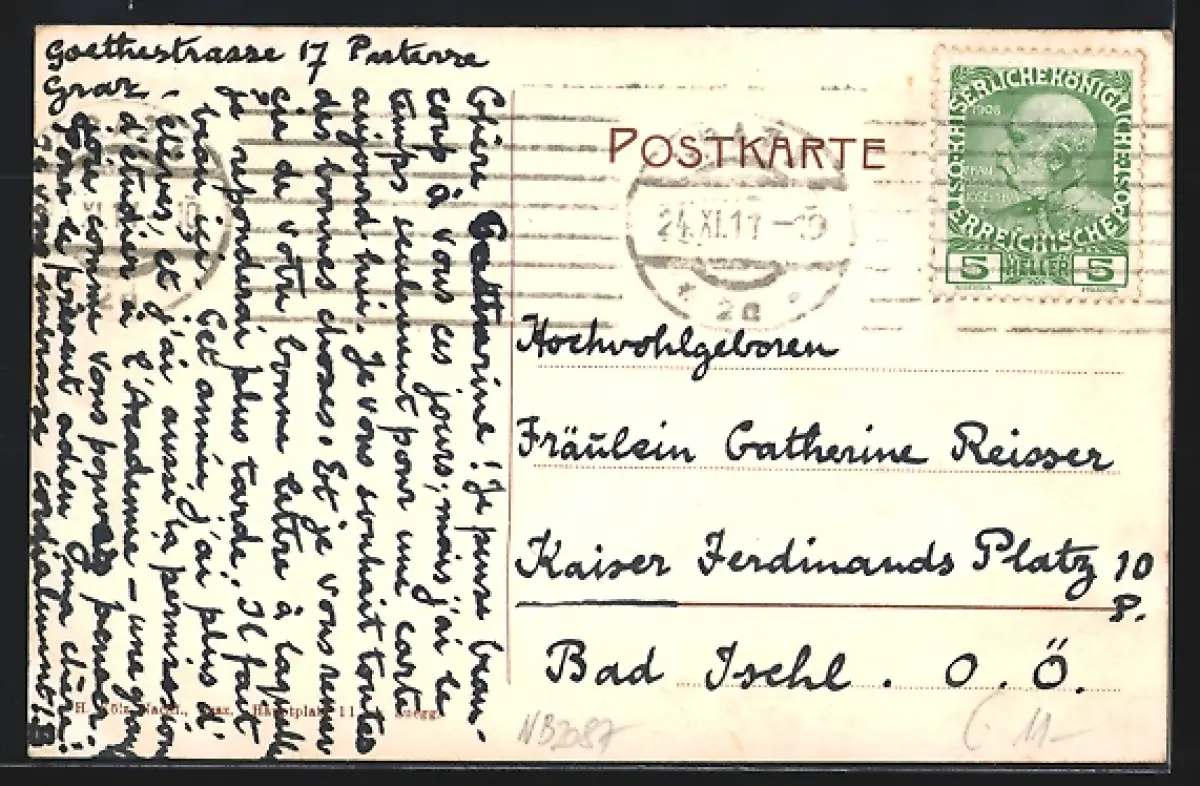 Goethestrasse 17 Parterre
Graz -
Chère Catharine! Je pense beau-
coup à vous ces jours, mais j'ai le
temps seulement pour une carte
aujourd'hui. Je vous souhait toutes
des bonnes choses. Et je vous remer
cie de votre bonne lettre à laquelle
je reponderai plus tarde. Il fait
beau ici. Cet année, j'ai plus d'
élèves, et j'ai aussi la permission
d'étudier à l'Academie - une gran
joie comme vous pouvez penser.
Pour le présent adieu, ma chère:
je vous embrasse cordialement!
POSTKARTE
KAISERLICHEKÖNIGLICHEÖSTERREICHISCHEPOST
1908
5 HELLER 5
24.XI.11 -10
* 2a *
Hochwohlgeboren
Fräulein Catherine Reisser
Kaiser Ferdinands Platz 10
P.
Bad Ischl . O. Ö.
H. Kölz Nachf., Graz, Hauptplatz 11
NB2087
11-